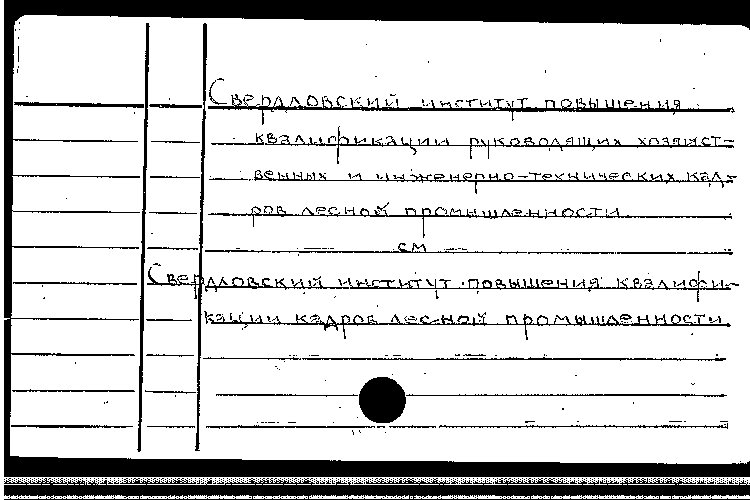 Свердловский институт повышения
квалификации руководящих хозяйст-
венных и инженерно-технических кад-
ров лесной промышленности
см
Свердловский институт повышения квалифи-
кации кадров лесной промышленности